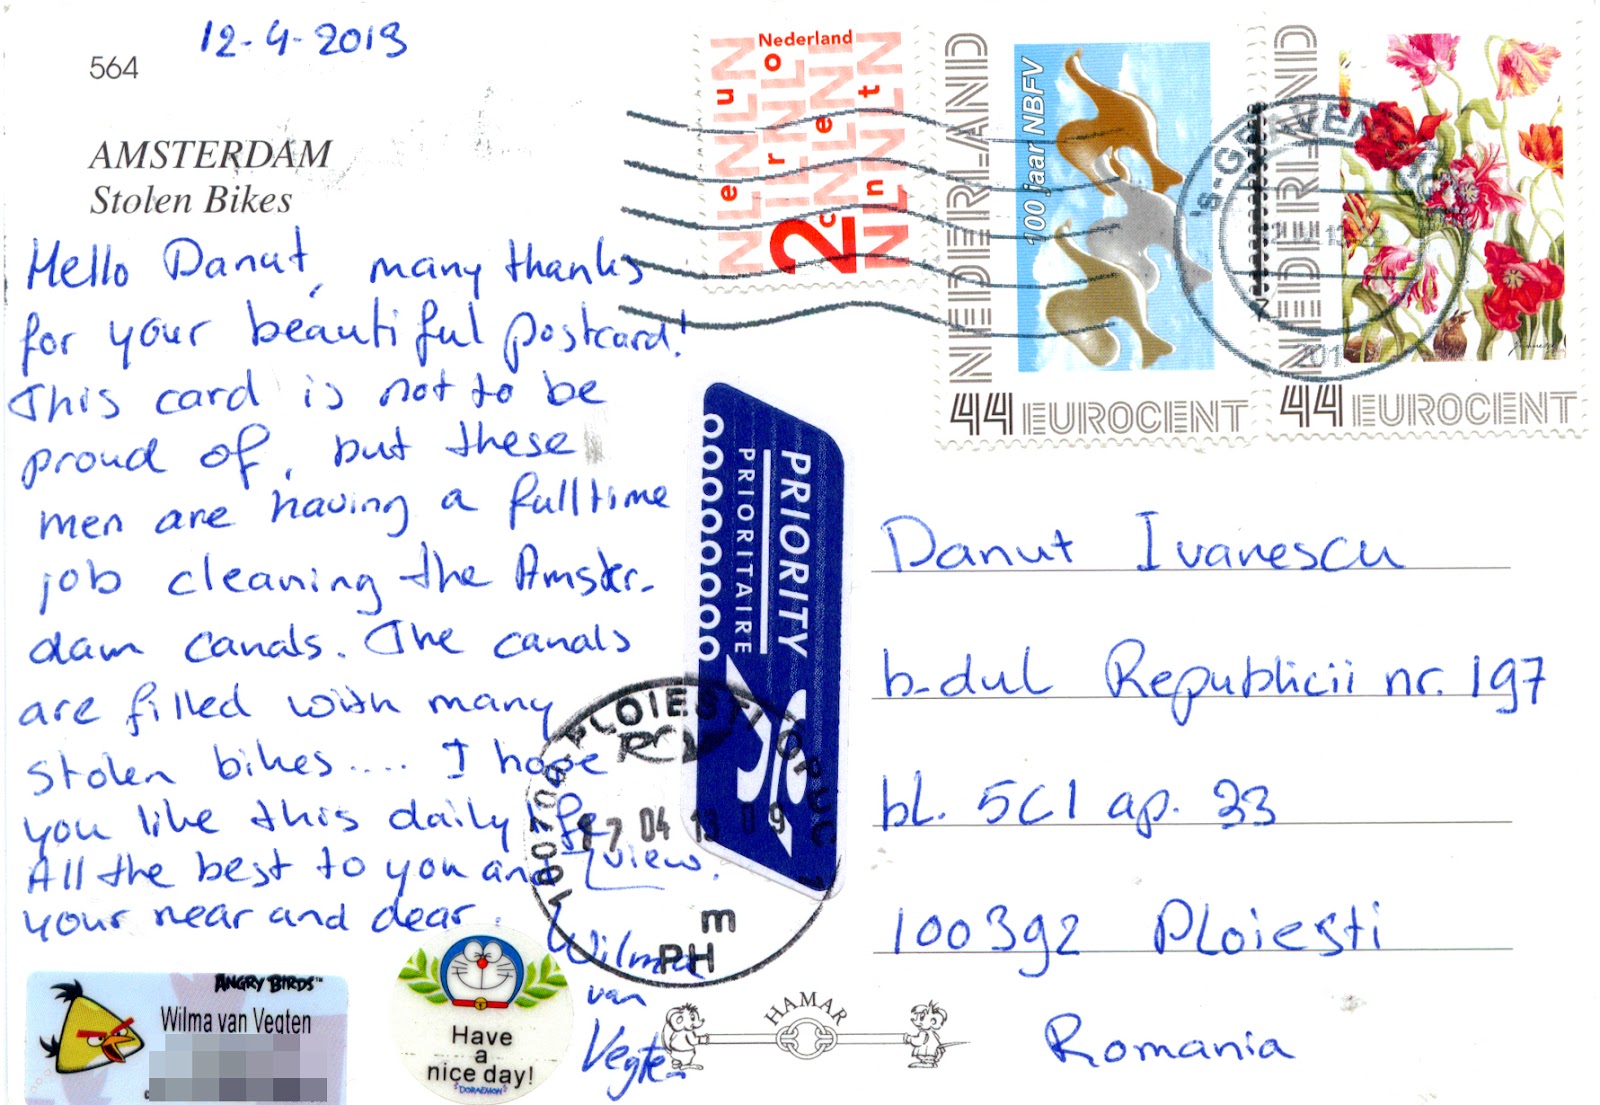 12-4-2013
564
AMSTERDAM
Stolen Bikes
Hello Danut, many thanks
for your beautiful postcard!
This card is not to be
proud of, but these
men are having a fulltime
job cleaning the Amster-
dam canals. The canals
are filled with many
stolen bikes.... I hope
you like this daily life
view.
All the best to you and
your near and dear.
Wilma
van
Vegten
ANGRY BIRDS™
Wilma van Vegten
Have
a
nice day!
DORAEMON
HAMAR
Nederland
2
NEDERLAND
100 jaar NBFV
44 EUROCENT
NEDERLAND
44 EUROCENT
PRIORITY
PRIORITAIRE
PLOIESTI
17 04 13 09
PH
Danut Ivanescu
b-dul Republicii nr. 197
bl. 5C1 ap. 33
100392 Ploiesti
Romania